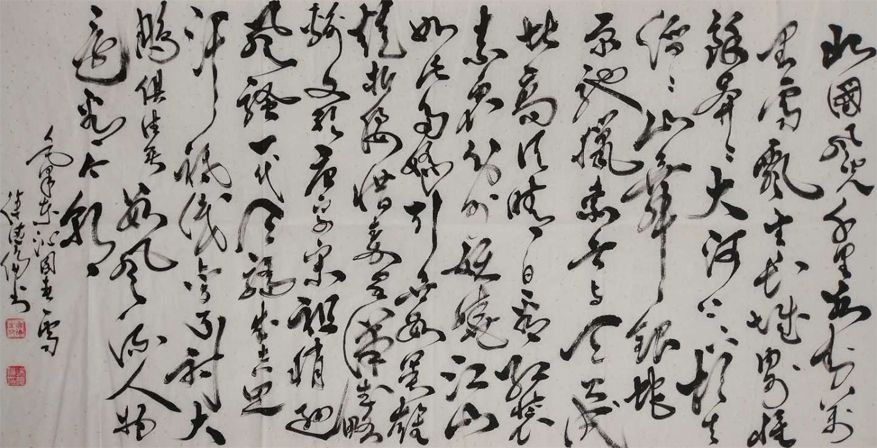 北國风光千里冰封万
里雪飘望长城内外惟
餘莽莽大河上下顿失
滔滔山舞银蛇
原驰臘象欲与天公试
比高须晴日看红装
素裹分外妖娆江山
如此多娇引无数英雄
竞折腰惜秦皇汉武略
输文采唐宗宋祖稍逊
风骚一代天骄成吉思
汗只识弯弓射大
鵰俱往矣数风流人物
还看今朝
毛泽东沁园春雪